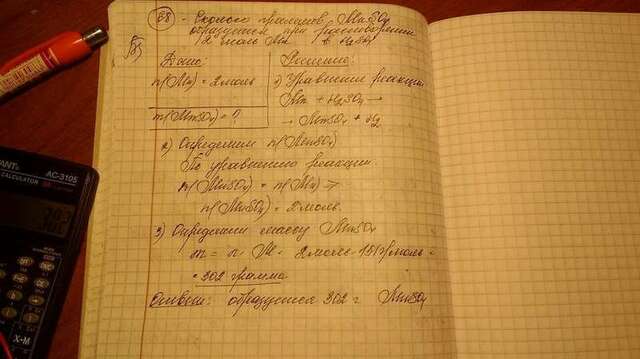 68 - Сколько граммов MnSO4
образуется при растворении
2 моль Mn в H2SO4
Дано: Решение:
n(Mn) = 2 моль 1) Уравнение реакции
Mn + H2SO4 →
m(MnSO4) = ? → MnSO4 + H2
2) Определим n(MnSO4)
По уравнению реакции
n(MnSO4) = n(Mn) ⇒
n(MnSO4) = 2 моль.
3) Определим массу MnSO4
m = n · M = 2 моль · 151 г/моль =
= 302 грамма
Ответ: образуется 302 г MnSO4
AC-3105
CALCULATOR
X→M